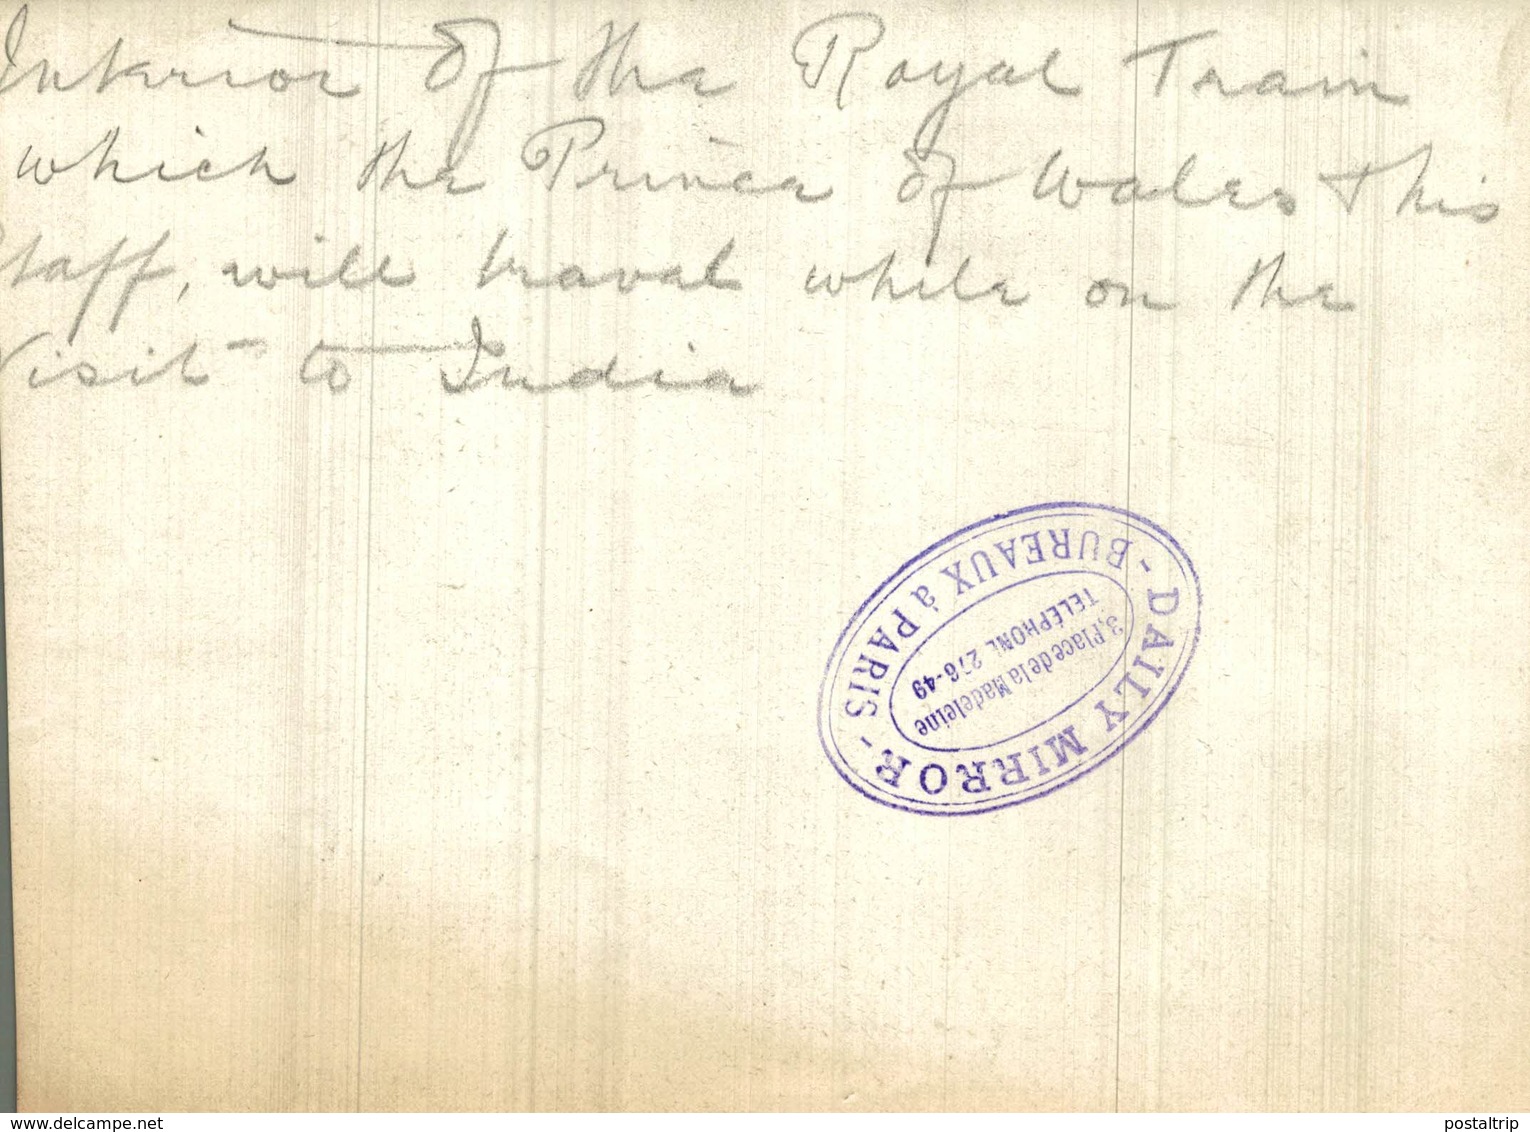 Interior of the Royal Train
which the Prince of Wales & his
Staff, will travel while on the
Visit to India
DAILY MIRROR
- BUREAUX à PARIS -
3, Place de la Madeleine
TELÉPHONE 276-49
www.delcampe.net
postaltrip